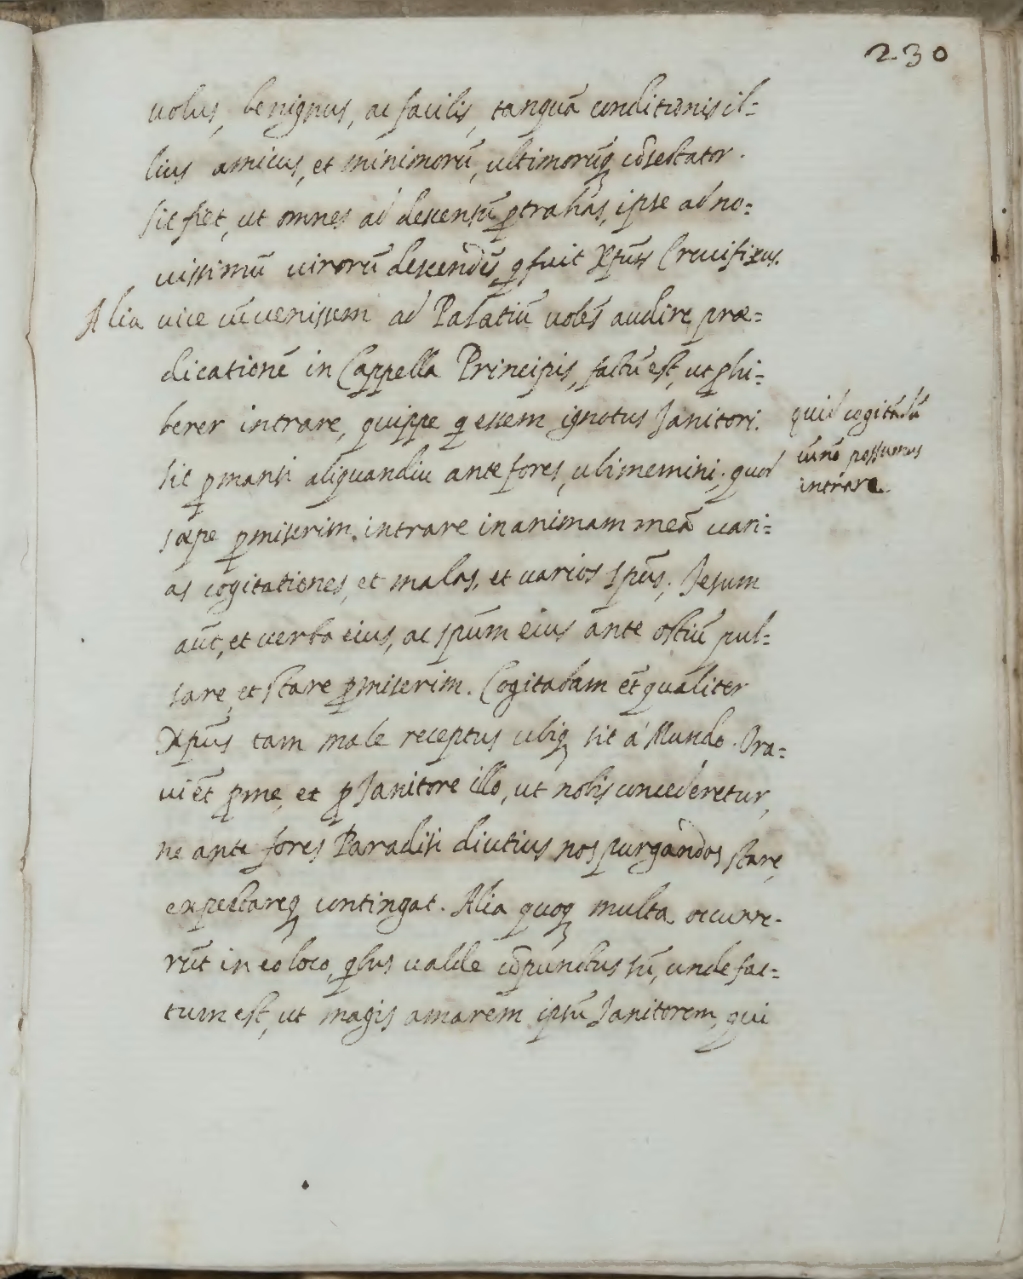 230
uolus, benignus, ac facilis, tanquā conditionis il=
lius amicus, et minimorū, ultimorūq; cōsectator.
Sic fiet, ut omnes ad descensū ꝑtrahas, ipse ad no=
uissimū uirorū descendēs, q fuit Xp̄us Crucifixus.
Alia uice cū uenissem ad Palatiū uolēs audire præ=
dicationē in Cappella Principis, factū est, ut ꝓhi=
berer intrare, quippe q essem ignotus Janitori.
Sic ꝑmansi aliquandiu ante fores, ubi memini, quod
sæpe ꝑmiserim intrare in animam meā uari=
as cogitationes, et malas, et uarios spūs; Jesum
aūt, et uerba eius, ac spūm eius ante ostiū pul=
sare, et stare ꝑmiserim. Cogitabam ēt qualiter
Xpūs tam male receptus ubiq; sit á Mundo. Ora=
ui ēt ꝓ me, et ꝓ Janitore illo, ut nobis concederetur,
ne ante fores Paradisi diutius nos purgandos stare,
expectareq; contingat. Alia quoq; multa occurre-
rūt in eo loco, qbus ualde cōpunctus sū, unde fac=
tum est, ut magis amarem ipsū Janitorem, qui
quid cogitādū
cū nō possumus
intrare.